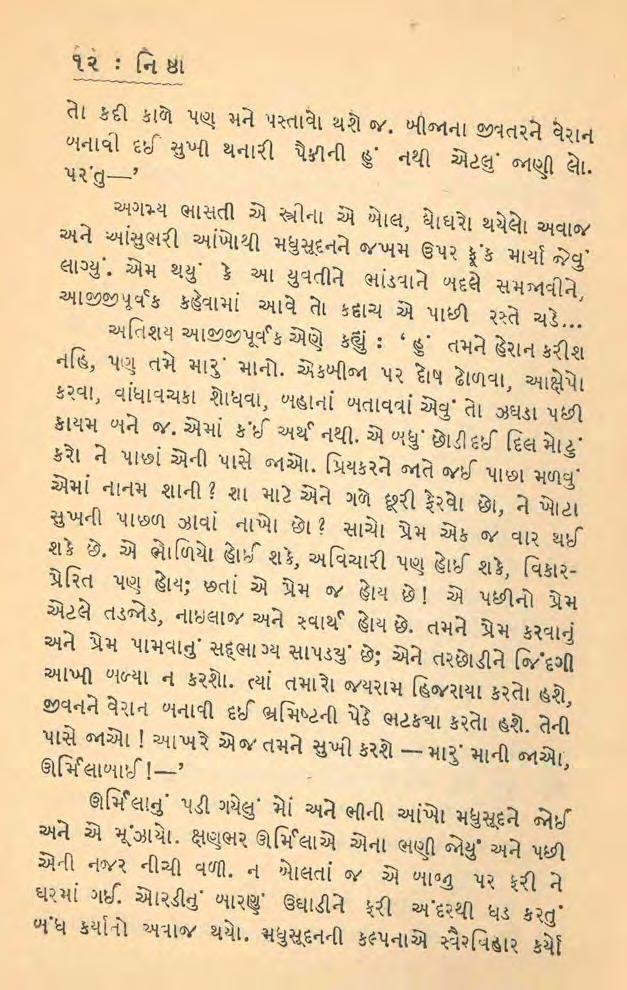 ૧૨ : નિષ્ઠા
તો કદી કાળે પણ મને પસ્તાવો થશે જ. બીજાના જીવતરને વેરાન
બનાવી દઈ સુખી થનારી પૈકીની હું નથી એટલું જાણી લો.
પરંતુ—’
અગમ્ય ભાસતી એ સ્ત્રીના એ બોલ, ઘોઘરો થયેલો અવાજ
અને આંસુભરી આંખોથી મધુસૂદનને જખમ ઉપર ફૂંક માર્યા જેવું
લાગ્યું. એમ થયું કે આ યુવતીને ભાંડવાને બદલે સમજાવીને,
આજીજીપૂર્વક કહેવામાં આવે તો કદાચ એ પાછી રસ્તે ચડે...
અતિશય આજીજીપૂર્વક એણે કહ્યું : ‘હું તમને હેરાન કરીશ
નહિ, પણ તમે મારું માનો. એકબીજા પર દોષ ઢોળવા, આક્ષેપો
કરવા, વાંધાવચકા શોધવા, બહાનાં બતાવવાં એવું તો ઝઘડા પછી
કાયમ બને જ. એમાં કંઈ અર્થ નથી. એ બધું છોડી દઈ દિલ મોટું
કરો ને પાછાં એની પાસે જાઓ. પ્રિયકરને જાતે જઈ પાછા મળવું
એમાં નાનમ શાની? શા માટે એને ગળે છૂરી ફેરવો છો, ને ખોટા
સુખની પાછળ ઝાવાં નાખો છો? સાચો પ્રેમ એક જ વાર થઈ
શકે છે. એ ભોળિયો હોઈ શકે, અવિચારી પણ હોઈ શકે, વિકાર-
પ્રેરિત પણ હોય; છતાં એ પ્રેમ જ હોય છે! એ પછીનો પ્રેમ
એટલે તડજોડ, નાઇલાજ અને સ્વાર્થ હોય છે. તમને પ્રેમ કરવાનું
અને પ્રેમ પામવાનું સદ્ભાગ્ય સાપડયું છે; એને તરછોડીને જિંદગી
આખી બળ્યા ન કરશો. ત્યાં તમારો જયરામ હિજરાયા કરતો હશે,
જીવનને વેરાન બનાવી દઈ ભ્રમિષ્ટની પેઠે ભટકયા કરતો હશે. તેની
પાસે જાઓ! આખરે એજ તમને સુખી કરશે — મારું માની જાઓ,
ઊર્મિલાબાઈ!—’
ઊર્મિલાનું પડી ગયેલું મોં અને ભીની આંખો મધુસૂદને જોઈ
અને એ મૂંઝાયો. ક્ષણભર ઊર્મિલાએ એના ભણી જોયું અને પછી
એની નજર નીચી વળી. ન બોલતાં જ એ બાજુ પર ફરી ને
ઘરમાં ગઈ. ઓરડીનું બારણું ઉઘાડીને ફરી અંદરથી ધડ કરતું
બંધ કર્યાનો અવાજ થયો. મધુસૂદનની કલ્પનાએ સ્વૈરવિહાર કર્યો